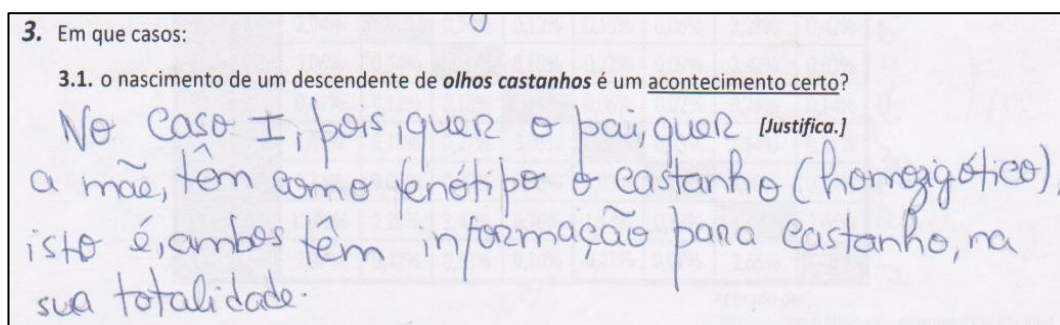 3. Em que casos:
3.1. o nascimento de um descendente de olhos castanhos é um acontecimento certo?
No caso I, pois, quer o pai, quer [Justifica.]
a mãe, têm como fenótipo o castanho (homozigótico),
isto é, ambos têm informação para castanho, na
sua totalidade.